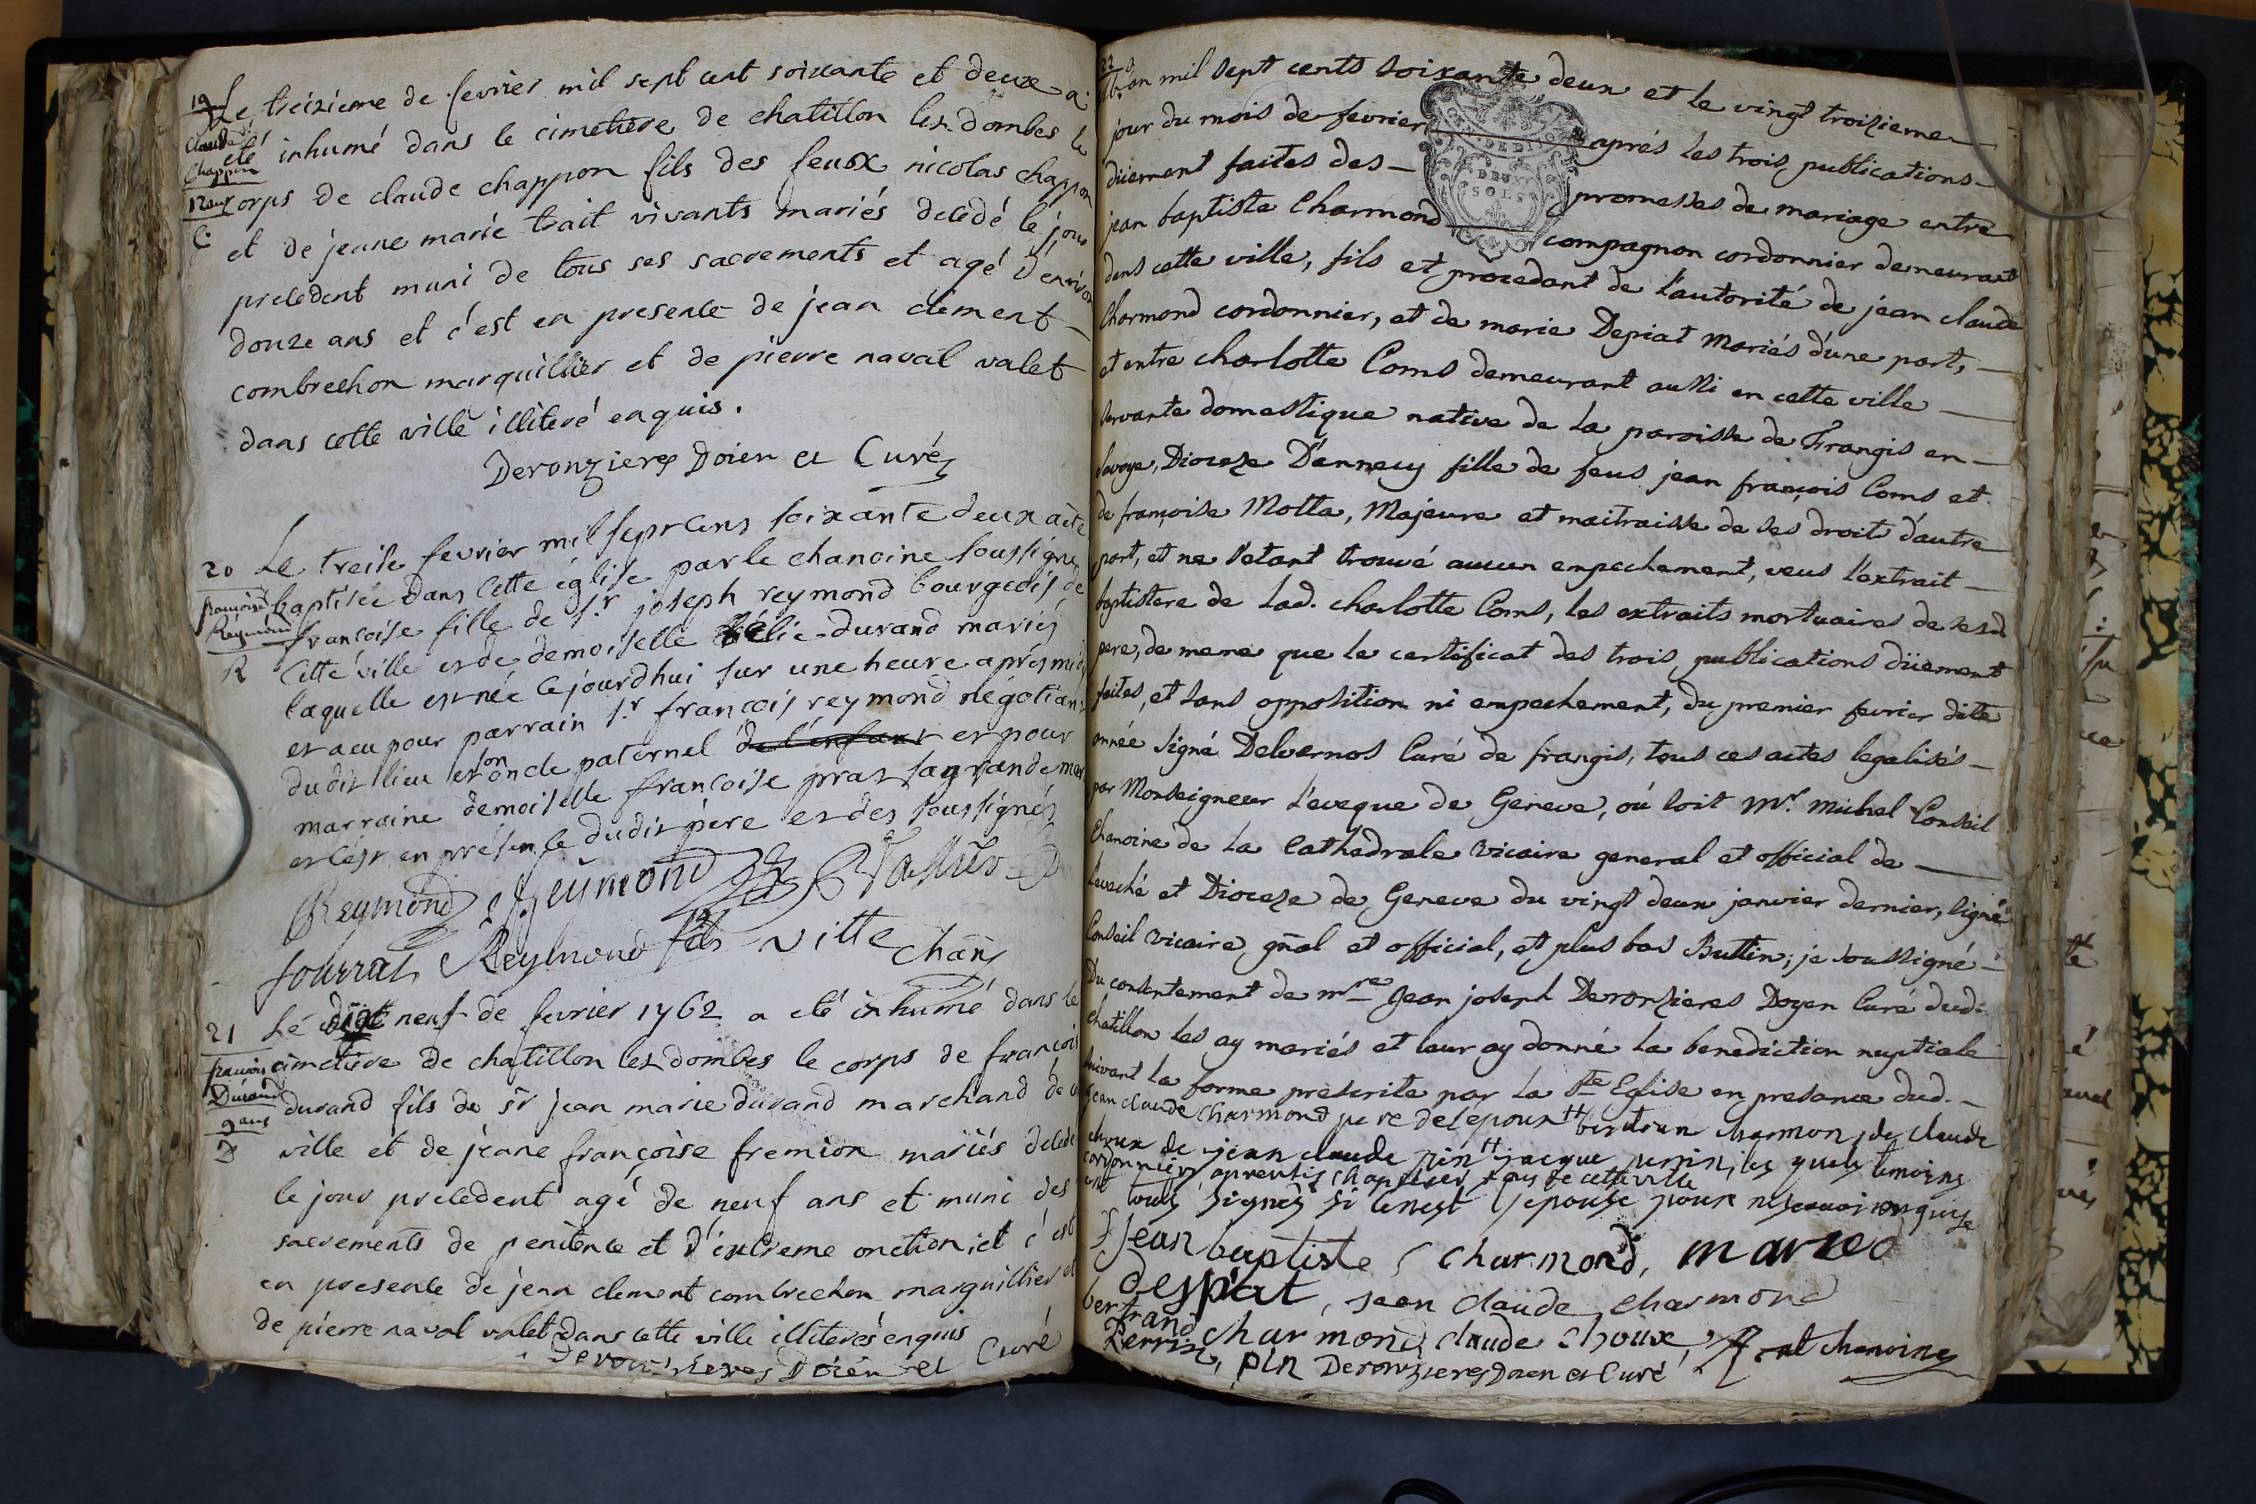 19
Claude
Chappon
12 ans
C.
Le treizieme de fevrier mil sept cent soixante et deux a
eté inhumé dans le cimetiere de chatillon les dombes le
corps de claude chappon fils des feux nicolas chappon
et de jeane marie trait vivants mariés decedé le jour
precedent muni de tous ses sacrements et agé d'environ
douze ans et c'est en presence de jean clement
combrechon marguillier et de pierre naval valet
dans cette ville illiteré enquis.
Deronzieres Doien et Curé
20
françoise
Reymond
R
Le treise fevrier mil sept cens soixante deux a eté
baptisée dans cette église par le chanoine soussigné
francoise fille de sr. joseph reymond bourgeois de
cette ville et de demoiselle durand mariés
laquelle est née cejourdhui sur une heure apres midi
et a eu pour parrain sr. françois reymond négotiant
dudit lieu et son oncle paternel de l'enfant et pour
marraine demoiselle francoise praz sa grandemere
et c'est en présence dudit père et des soussignés
Reymond Reymond
Reymond fils vitte chan.
21
francois
Durand
9 ans
D
Lé neuf de fevrier 1762 a eté inhumé dans le
cimetiere de chatillon les dombes le corps de francois
durand fils de sr jean marie durand marchand de ce
ville et de jeane françoise fremion mariés decedé
le jour precedent agé de neuf ans et muni des
sacrements de penitence et d'extreme onction, et c'est
en presence de jean clement combrechon marguillier et
de pierre naval valet dans cette ville illiterés enquis
Deronzieres Doien et Curé
22
L'an mil sept cents soixante deux et le vingt troisieme
jour du mois de fevrier aprés les trois publications
düement faites des promesses de mariage entre
DEUX
SOLS
jean baptiste Charmond compagnon cordonnier demeurant
dans cette ville, fils et procedant de l'autorité de jean claude
Charmond cordonnier, et de marie Depiat mariés d'une part,
et entre charlotte Coms demeurant aussi en cette ville
servante domestique native de la paroisse de Frangis en
Savoye, Diocese D'annecy fille de feus jean françois Coms et
de françoise Motta, Majeure et maitraisse de ses droit d'autre
part, et ne s'etant trouvé aucun empechement, veus l'extrait
baptistere de lad. charlotte Coms, les extraits mortuaires de sesd
pere, de meme que le certificat des trois publications düement
faites, et sans opposition ni empechement, du premier fevrier dite
année signé Delvernos Curé de frangis, tous ces actes legalisés
par Monseigneur L'eveque de Geneve, où soit Mr. Michel Conseil
Chanoine de La Cathedrale Vicaire general et official de
L'eveché et Diocese de Geneve du vingt deux janvier dernier, signé
Conseil vicaire gnal et official, et plus bas Buttin; je soussigné
Du consentement de mre Jean joseph Deronzieres Doyen Curé dud.
chatillon les ay mariés et leur ay donné la benediction nuptiale
suivant la forme prèscrite par la Ste Eglise en presance dud.
jean claude Charmond pere de lepoux bertran charmon, de claude
choux de jean claude pin jacque perrin, les quels temoins
cordonniers, aprentis chapelier, tous de cette ville
ont tous signés si cenest lepouse pour ne savoir enquise
Jean baptiste Charmond, marie
despiat, Jean Claude charmond
bertrand charmond, claude choux,
Perrin, pin Deronzieres Doien et Curé chanoine